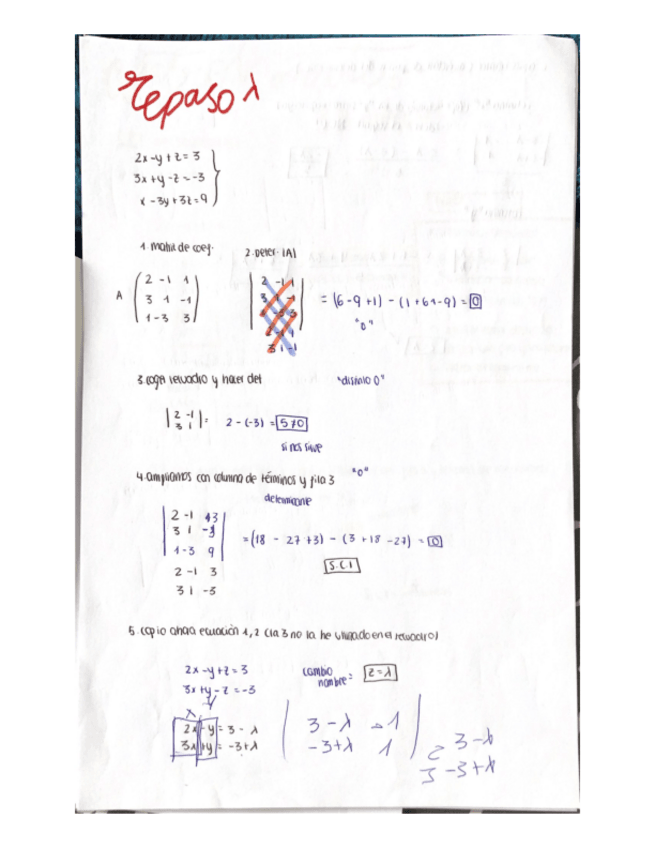 repaso λ
2x-y+z=3
3x+y-z=-3
x-3y+3z=9
1. matriz de coef. 2. Deter. |A|
A 2 -1 1
3 1 -1
1 -3 3
2 -1 1
3 1 -1
1 -3 3
2 -1 1
3 1 -1
= (6-9+1) - (1+6-9) = 0
"0"
3. coger recuadro y hacer det "distinto 0"
2 -1
3 1
= 2-(-3) = 5≠0
si nos sirve
4. ampliamos con columna de términos y fila 3 "0"
determinante
2 -1 3
3 1 -3
1 -3 9
2 -1 3
3 1 -3
= (18 - 27 + 3) - (3 + 18 - 27) = 0
S.C.I
5. copio ahora ecuación 1, 2 (la 3 no la he utilizado en el recuadro)
2x-y+z=3
3x+y-z=-3
cambio nombre = z=λ
x y
2x -y = 3-λ
3x +y = -3+λ
3-λ -1
-3+λ 1
2 3-λ
3 -3+λ